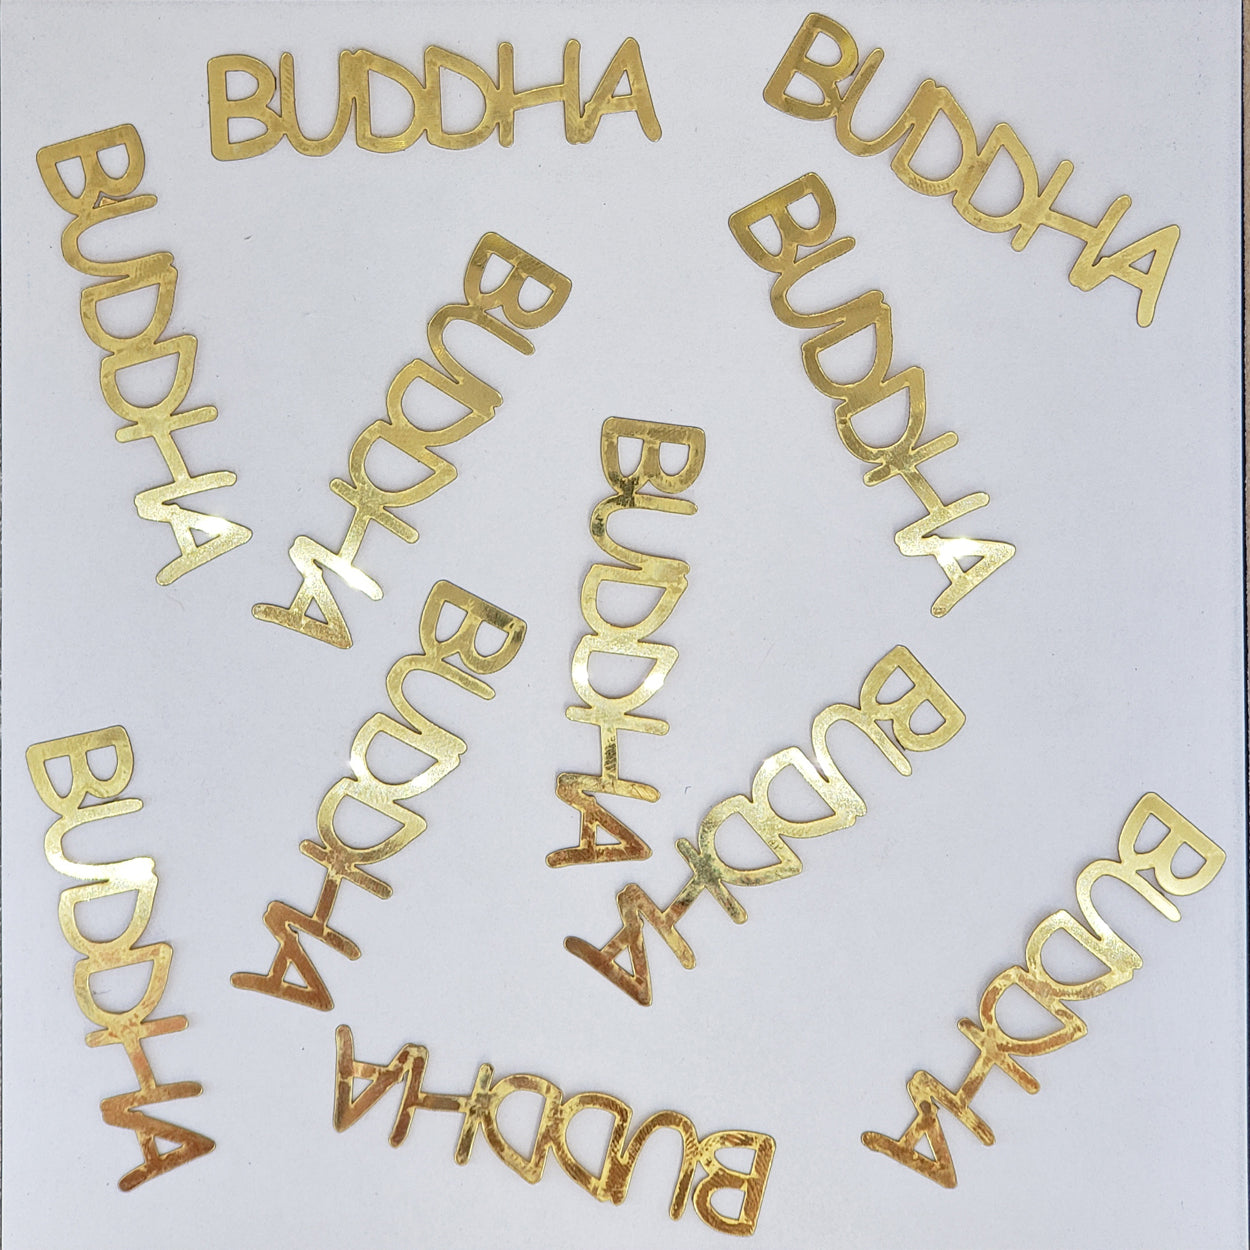 BUDDHA
BUDDHA
BUDDHA
BUDDHA
BUDDHA
BUDDHA
BUDDHA
BUDDHA
BUDDHA
BUDDHA
BUDDHA